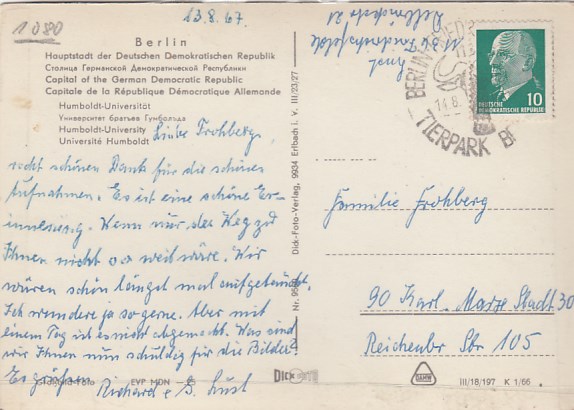 13.8.67.
1080
Berlin
Hauptstadt der Deutschen Demokratischen Republik
Столица Германской Демократической Республики
Capital of the German Democratic Republic
Capitale de la République Démocratique Allemande
Humboldt-Universität
Университет братьев Гумбольда
Humboldt-University
Université Humboldt
Liebe Frohberg
recht schönen Dank für die schönen
Aufnahmen. Es ist eine schöne Er-
innerung. Wenn nur der Weg zu
Ihnen nicht so weit wäre. Wir
wären schon längst mal aufgetaucht.
Ich wandere ja so gerne. Aber mit
einem Tag ist es nicht abgemacht. Was sind
wir Ihnen nun schuldig für die Bilder?
Es grüßen
Richard e
EVP MDN
Nr.
Dick-Foto-Verlag, 9934 Erlbach i. V. III/23/27
DICK
BERLIN
14.8.
TIERPARK
DEUTSCHE
DEMOKRATISCHE REPUBLIK
10
Familie Frohberg
90 Karl-Marx Stadt 30
Reichenbr Str 105
III/18/197 K 1/66